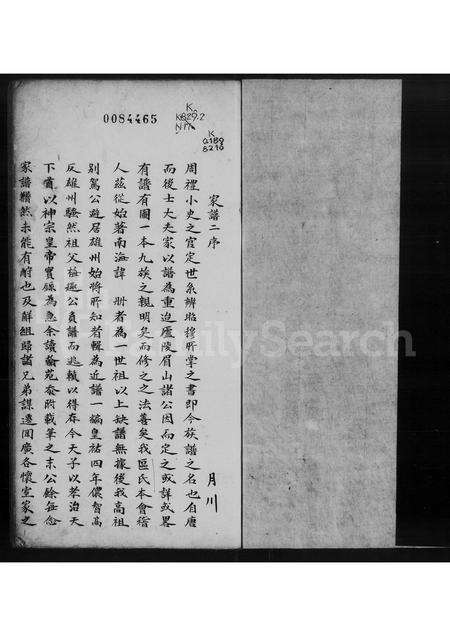 0084465
K
K829.2
N179
K
0189
8210
家譜二序
月川
周禮小史之官定世系辨昭穆所掌之書即今族譜之名也自唐
而後士大夫家以譜為重迨廬陵眉山諸公因而定之或詳或畧
有譜有圖一本九族之親明矣而修之之法善矣我區氏本會稽
人茲從始著南海諱冊者為一世祖以上缺譜無據後我高祖
別駕公避居雄州始將所知者輯為近譜一編皇祐四年儂智高
反雄州騷然祖父極遜公負譜而逃賴以得存今天子以孝治天
下嘗以神宗皇帝實錄為急余讀翰苑忝附載筆之末公餘每念
家譜黯然未能有酧也及解組歸諸兄弟謀遂回廣各懷室家之
FamilySearch